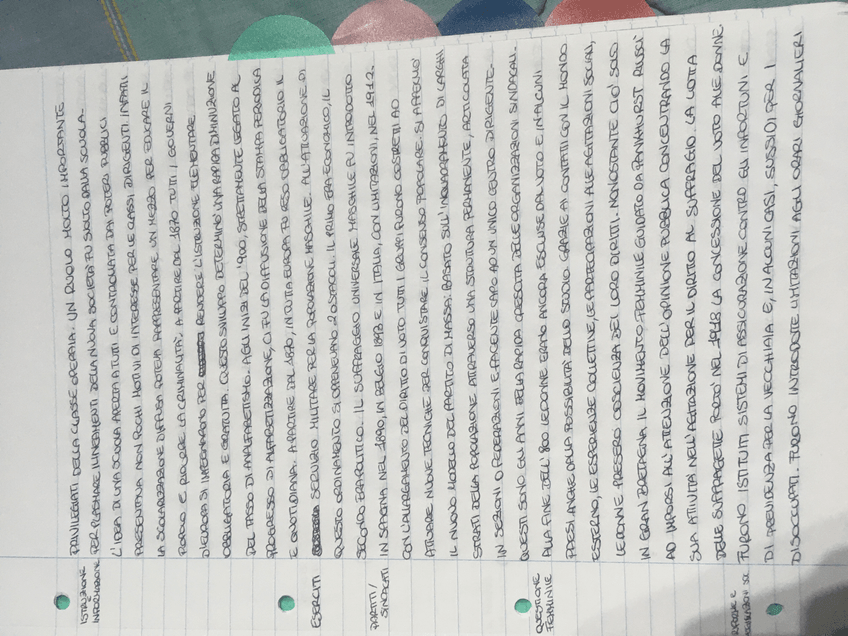 PRIVILEGIATI DELLA CLASSE OPERAIA. UN RUOLO MOLTO IMPORTANTE
ISTRUZIONE E INFORMAZIONE
PER PLASMARE I LINEAMENTI DELLA NUOVA SOCIETÀ FU SVOLTO DALLA SCUOLA.
L'IDEA DI UNA SCUOLA APERTA A TUTTI E CONTROLLATA DAI POTERI PUBBLICI
PRESENTAVA NON POCHI MOTIVI DI INTERESSE PER LE CLASSI DIRIGENTI. INFATTI
LA SCOLARIZZAZIONE DIFFUSA POTEVA RAPPRESENTARE UN MEZZO PER EDUCARE IL
POPOLO E RIDURRE LA CRIMINALITÀ. A PARTIRE DAL 1870 TUTTI I GOVERNI
D'EUROPA SI IMPEGNARONO PER RENDERE L'ISTRUZIONE ELEMENTARE
OBBLIGATORIA E GRATUITA. QUESTO SVILUPPO DETERMINÒ UNA RAPIDA DIMINUZIONE
DEL TASSO DI ANALFABETISMO. AGLI INIZI DEL '900, STRETTAMENTE LEGATO AL
PROGRESSO DI ALFABETIZZAZIONE, CI FU LA DIFFUSIONE DELLA STAMPA PERIODICA
E QUOTIDIANA. A PARTIRE DAL 1870, IN TUTTA EUROPA FU RESO OBBLIGATORIO IL
ESERCITI
SERVIZIO MILITARE PER LA POPOLAZIONE MASCHILE. ALL'ATTUAZIONE DI
QUESTO ORDINAMENTO SI OPPONEVANO 2 OSTACOLI. IL PRIMO ERA ECONOMICO, IL
SECONDO ERA POLITICO. IL SUFFRAGIO UNIVERSALE MASCHILE FU INTRODOTTO
PARTITI/ SINDACATI
IN SPAGNA NEL 1890, IN BELGIO 1893 E IN ITALIA, CON LIMITAZIONI, NEL 1912.
CON L'ALLARGAMENTO DEL DIRITTO DI VOTO TUTTI I GRUPPI FURONO COSTRETTI AD
ATTUARE NUOVE TECNICHE PER CONQUISTARE IL CONSENSO POPOLARE. SI AFFERMÒ
IL NUOVO MODELLO DEL PARTITO DI MASSA: BASATO SULL'INQUADRAMENTO DI LARGHI
STRATI DELLA POPOLAZIONE ATTRAVERSO UNA STRUTTURA PERMANENTE, ARTICOLATA
IN SEZIONI O FEDERAZIONI E FACENTE CAPO AD UN UNICO CENTRO DIRIGENTE.
QUESTI SONO GLI ANNI DELLA RAPIDA CRESCITA DELLE ORGANIZZAZIONI SINDACALI.
QUESTIONE FEMMINILE
ALLA FINE DELL'800 LE DONNE ERANO ANCORA ESCLUSE DAL VOTO E IN ALCUNI
PAESI ANCHE DALLA POSSIBILITÀ DELLO STUDIO. GRAZIE AI CONTATTI CON IL MONDO
ESTERNO, LE ESPERIENZE COLLETTIVE, LE PARTECIPAZIONI ALLE AGITAZIONI SOCIALI,
LE DONNE PRESERO COSCIENZA DEI LORO DIRITTI. NONOSTANTE CIÒ SOLO
IN GRAN BRETAGNA IL MOVIMENTO FEMMINILE GUIDATO DA PANKHURST RIUSCÌ
AD IMPORSI ALL'ATTENZIONE DELL'OPINIONE PUBBLICA CONCENTRANDO LA
SUA ATTIVITÀ NELL'AGITAZIONE PER IL DIRITTO AL SUFFRAGIO. LA LOTTA
DELLE SUFFRAGETTE PORTÒ NEL 1918 LA CONCESSIONE DEL VOTO ALLE DONNE.
FURONO ISTITUITI SISTEMI DI ASSICURAZIONE CONTRO GLI INFORTUNI E
DI PREVIDENZA PER LA VECCHIAIA E, IN ALCUNI CASI, SUSSIDI PER I
DISOCCUPATI. FURONO INTRODOTTE LIMITAZIONI AGLI ORARI GIORNALIERI